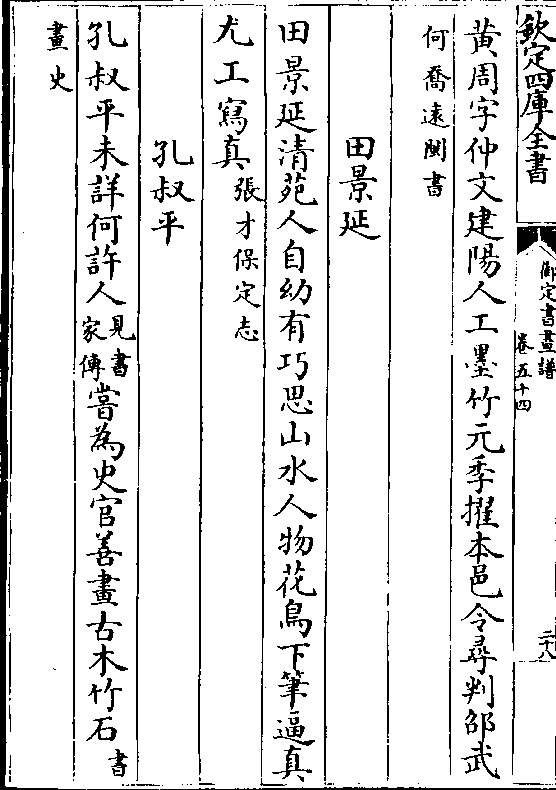 欽定四庫全書
御定書畫譜
卷五十四
二十八
黄周字仲文建陽人工墨竹元季擢本邑令尋判邵武
何喬遠閩書
田景延
田景延清苑人自幼有巧思山水人物花鳥下筆逼真
尤工寫真張才保定志
孔叔平
孔叔平未詳何許人見書家傳嘗為史官善畫古木竹石書
畫史